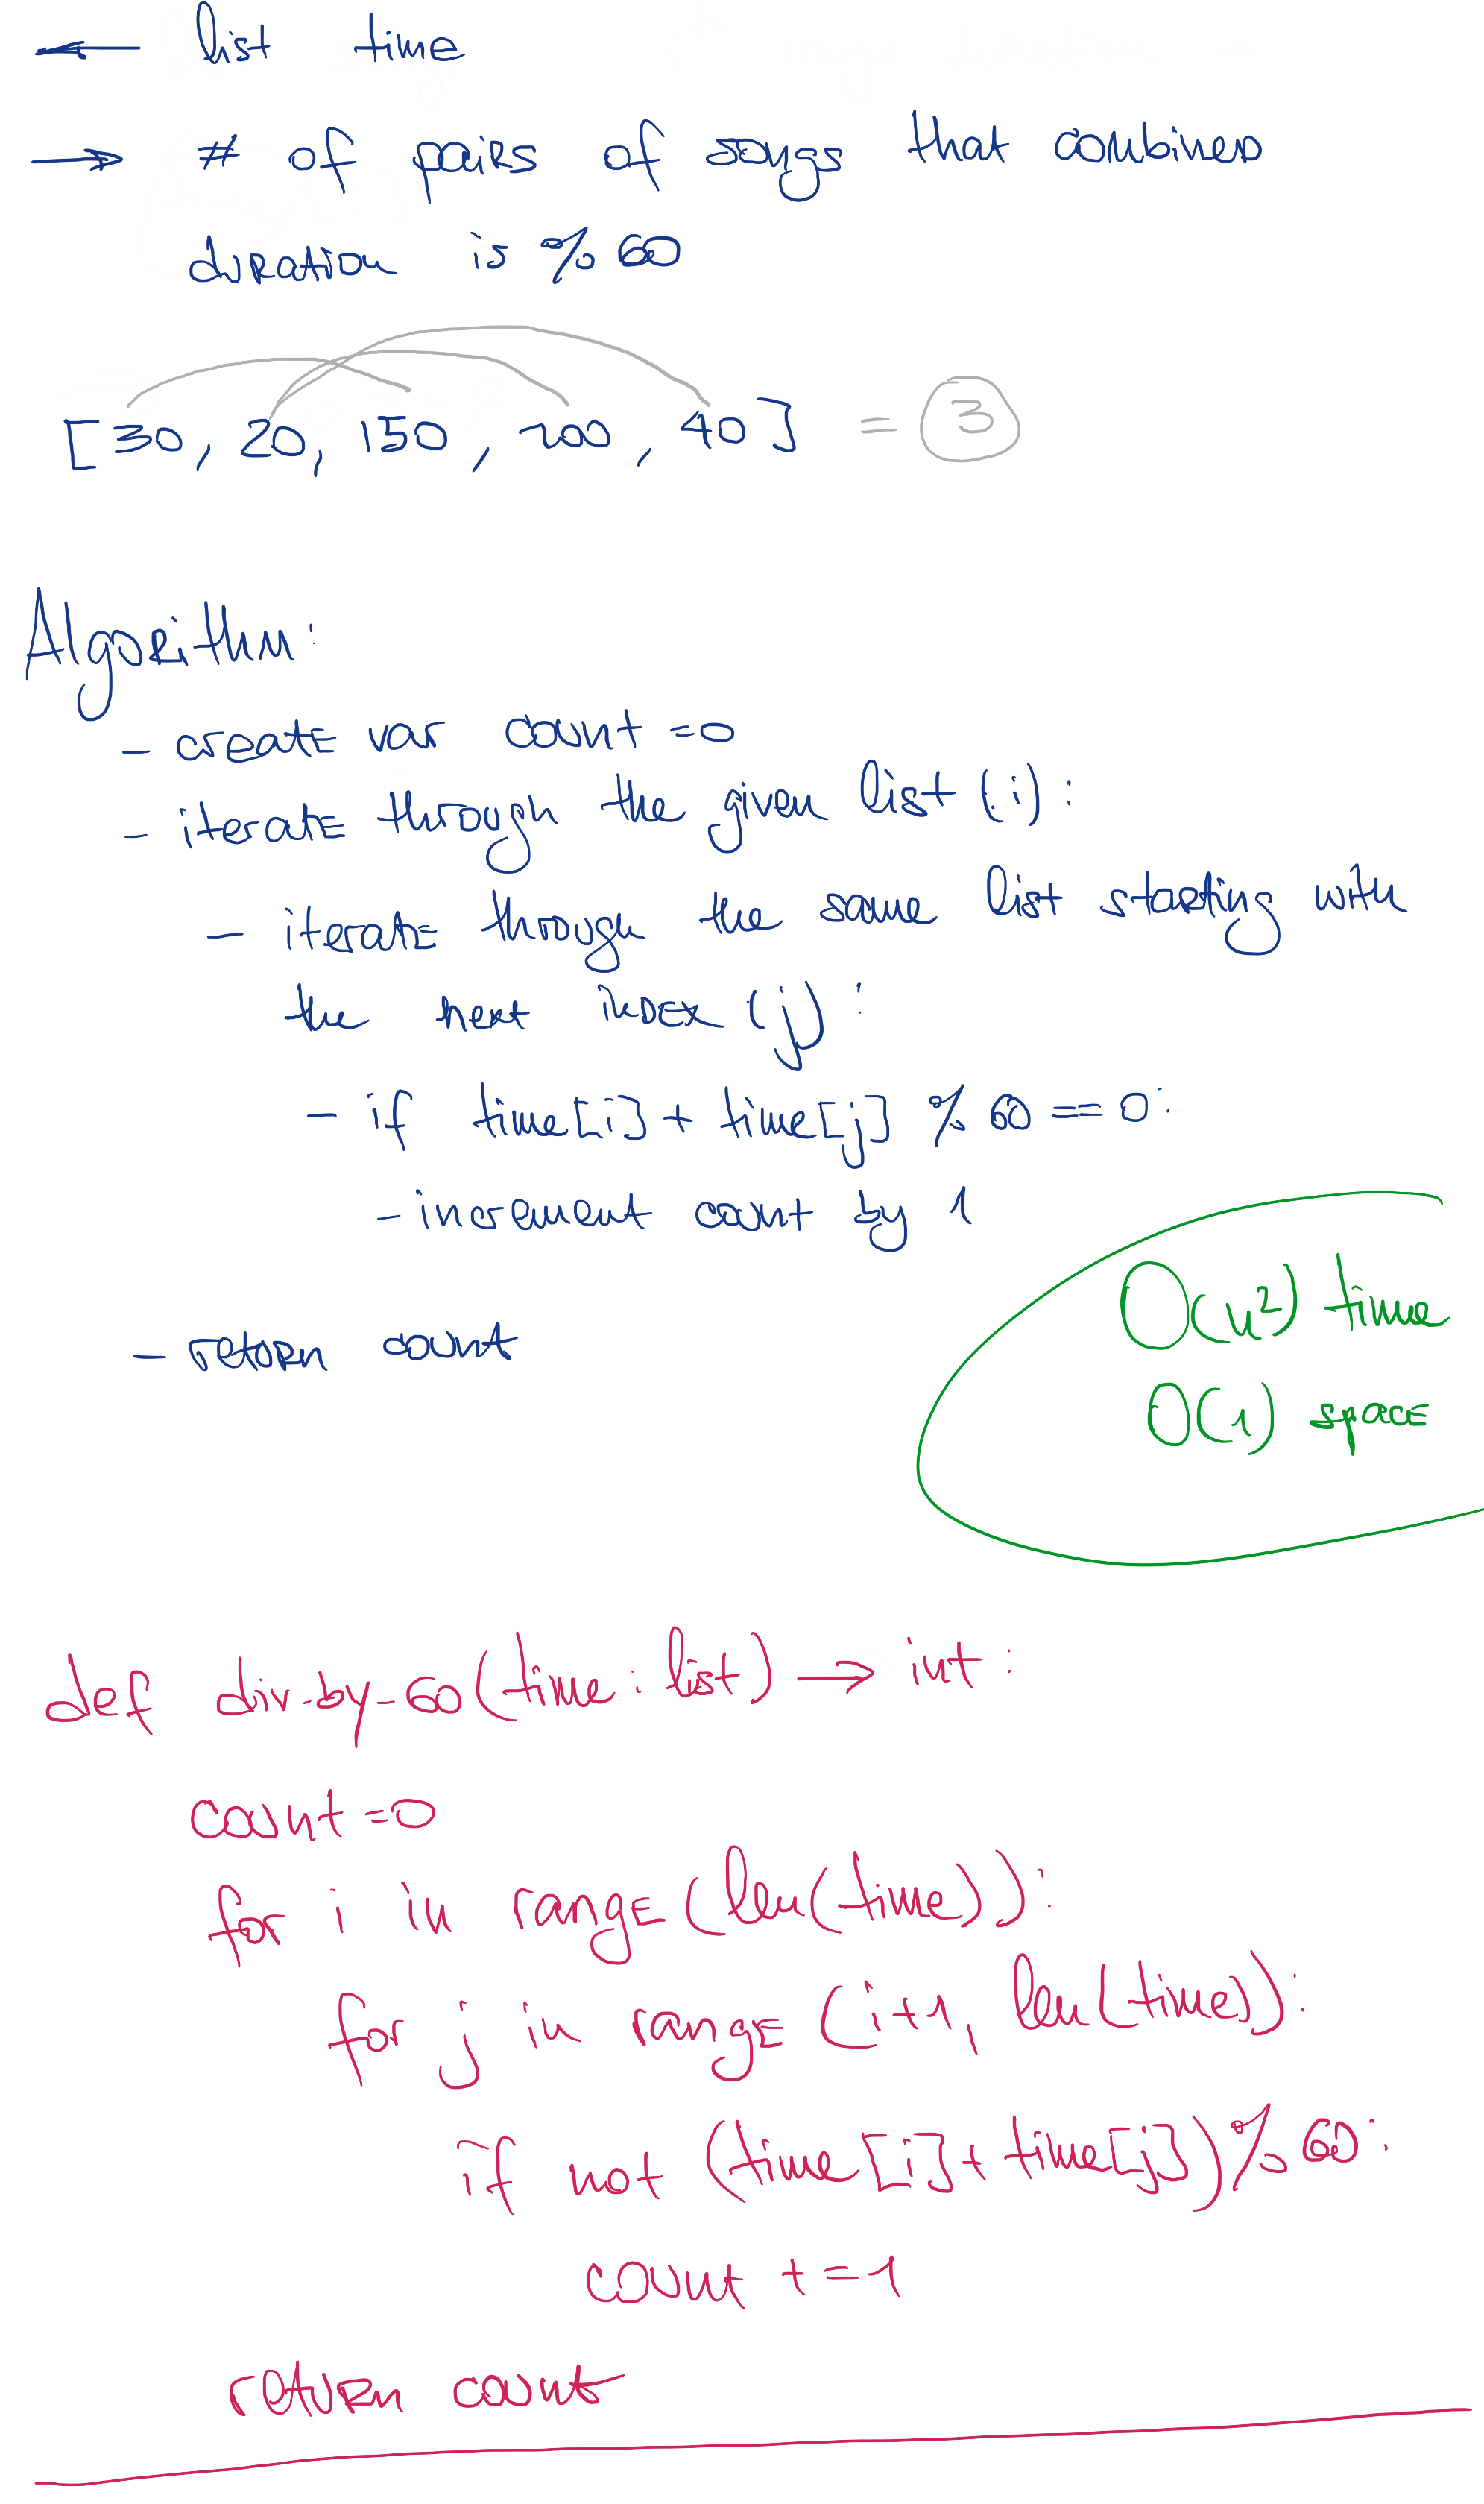 ← list time
→ # of pairs of songs that combined
duration is % 60
[30, 20, 150, 100, 40] = 3
Algorithm:
- create var count = 0
- iterate through the given list (i):
- iterate through the same list starting with
the next index (j):
- if time[i] + time[j] % 60 == 0:
- increment count by 1
- return count
O(n²) time
O(1) space
def div-by-60(time: list) → int:
count = 0
for i in range(len(time)):
for j in range(i+1, len(time)):
if not (time[i] + time[j]) % 60:
count += 1
return count